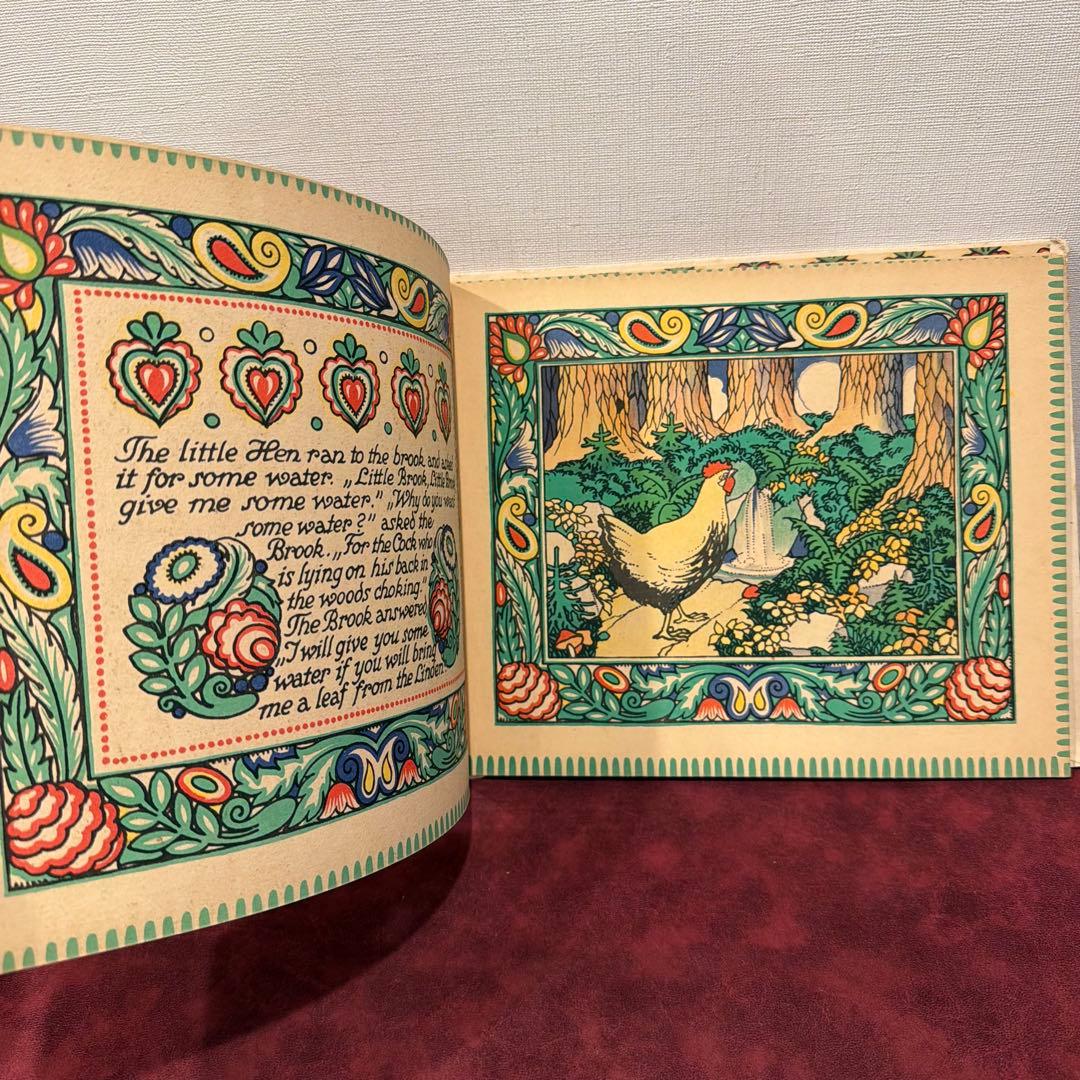 The little Hen ran to the brook and asked
it for some water. „Little Brook, Little Brook
give me some water." „Why do you want
some water?" asked the
Brook. „For the Cock who
is lying on his back in
the woods choking."
The Brook answered
„I will give you some
water if you will bring
me a leaf from the Linden.